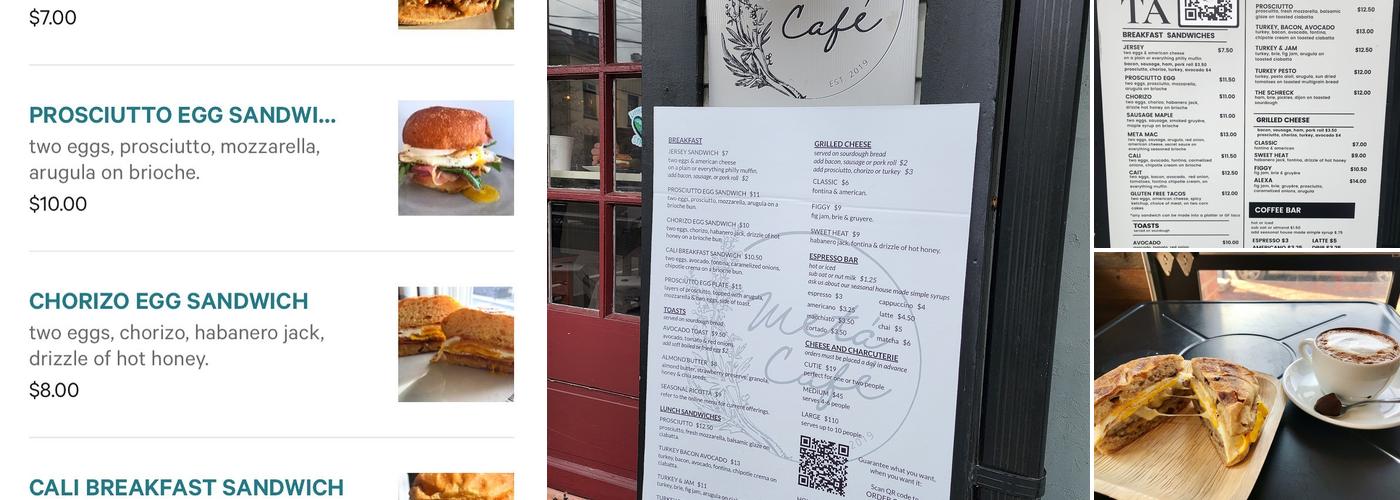 $7.00
PROSCIUTTO EGG SANDWI...
two eggs, prosciutto, mozzarella,
arugula on brioche.
$10.00
CHORIZO EGG SANDWICH
two eggs, chorizo, habanero jack,
drizzle of hot honey.
$8.00
CALI BREAKFAST SANDWICH
Café
EST 2019
BREAKFAST
JERSEY SANDWICH $7
two eggs & american cheese
on a plain or everything philly muffin.
add bacon, sausage, or pork roll $2
PROSCIUTTO EGG SANDWICH $11
two eggs, prosciutto, mozzarella, arugula on a
brioche bun.
CHORIZO EGG SANDWICH $10
two eggs, chorizo, habanero jack, drizzle of hot
honey on a brioche bun.
CALI BREAKFAST SANDWICH $10.50
two eggs, avocado, fontina, caramelized onions,
chipotle crema on a brioche bun.
PROSCIUTTO EGG PLATE $11
layers of prosciutto, topped with arugula,
mozzarella & two eggs, side of toast.
TOASTS
served on sourdough bread
AVOCADO TOAST $9.50
avocado, tomato & red onions.
add soft boiled or fried egg $2
ALMOND BUTTER $8
almond butter, strawberry preserve, granola,
honey & chia seeds.
SEASONAL RICOTTA $9
refer to the online menu for current offerings.
LUNCH SANDWICHES
PROSCIUTTO $12.50
prosciutto, fresh mozzarella, balsamic glaze on
ciabatta.
TURKEY BACON AVOCADO $13
turkey, bacon, avocado, fontina, chipotle crema on
ciabatta.
TURKEY & JAM $11
turkey, brie, fig jam, arugula on
GRILLED CHEESE
served on sourdough bread
add bacon, sausage or pork roll $2
add prosciutto, chorizo or turkey $3
CLASSIC $6
fontina & american.
FIGGY $9
fig jam, brie & gruyere.
SWEET HEAT $9
habanero jack, fontina & drizzle of hot honey.
ESPRESSO BAR
hot or iced
sub oat or nut milk $1.25
ask us about our seasonal house made simple syrups
espresso $3
cappuccino $4
americano $3.25
latte $4.50
macchiato $3.50
chai $5
cortado $3.50
matcha $6
Meta
Café
2019
CHEESE AND CHARCUTERIE
orders must be placed a day in advance
CUTIE $19
perfect for one or two people
MEDIUM $45
serves 4-6 people
LARGE $110
serves up to 10 people
Guarantee what you want,
when you want it:
Scan QR code to
TA
BREAKFAST SANDWICHES
JERSEY $7.50
two eggs & american cheese
on a plain or everything philly muffin
bacon, sausage, ham, pork roll $3.50
prosciutto, chorizo, turkey, avocado $4
PROSCIUTTO EGG $11.50
two eggs, prosciutto, mozzarella,
arugula on brioche
CHORIZO $11.00
two eggs, chorizo, habanero jack,
drizzle hot honey on brioche
SAUSAGE MAPLE $11.00
two eggs, sausage, smoked gruyére,
maple syrup on brioche
META MAC $13.00
two eggs, sausage, arugula, red onion,
american cheese, secret sauce on
everything seasoned brioche
CALI $11.50
two eggs, avocado, fontina, carmelized
onions, chipotle crema on brioche
CAIT $12.50
two eggs, bacon, avocado, red onion,
tomatoes, fontina, chipotle cream on
everything muffin
GLUTEN FREE TACOS $12.00
two eggs, american cheese, spicy
ketchup, choice of meat, on two corn
cakes
*any sandwich can be made into a platter or GF taco
TOASTS
served on sourdough
AVOCADO $10.00
avocado, tomato, red onion
PROSCIUTTO $12.50
prosciutto, fresh mozzarella, balsamic
glaze on toasted ciabatta
TURKEY, BACON, AVOCADO $13.00
turkey, bacon, avocado, fontina,
chipotle cream on toasted ciabatta
TURKEY & JAM $12.50
turkey, brie, fig jam, arugula on
toasted ciabatta
TURKEY PESTO $12.00
turkey, pesto aioli, arugula, sun dried
tomatoes on toasted multigrain bread
THE SCHRECK $12.00
ham, brie, pickles, dijon on toasted
sourdough
GRILLED CHEESE
bacon, sausage, ham, pork roll $3.50
prosciutto, chorizo, turkey, avocado $4
CLASSIC $7.00
fontina & american
SWEET HEAT $9.00
habanero jack, fontina, drizzle of hot honey
FIGGY $10.50
fig jam, brie & gruyére
ALEXA $14.00
fig jam, brie, gruyére, prosciutto,
caramelized onions, arugula
COFFEE BAR
hot or iced
sub oat or almond $1.50
add seasonal house made simple syrup $.75
ESPRESSO $3 LATTE $5